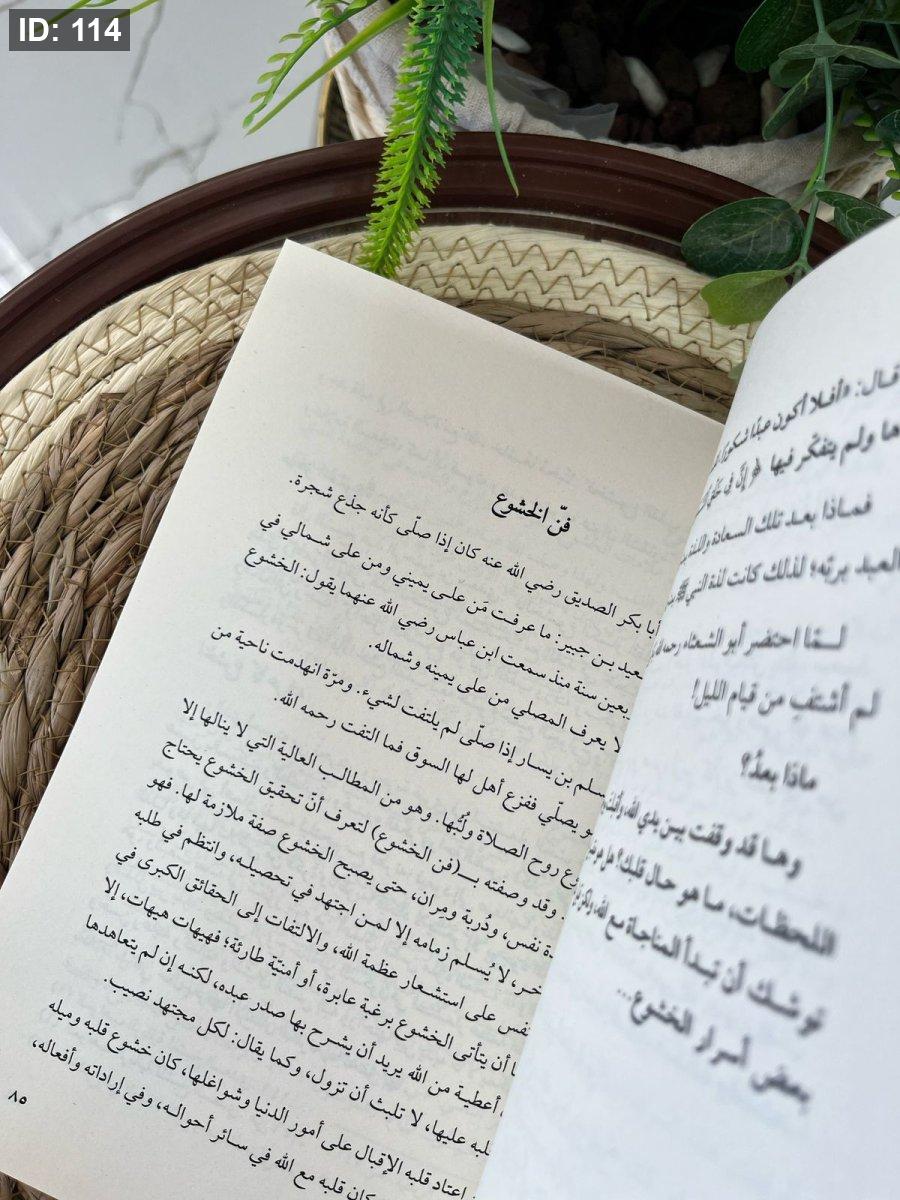 ID: 114
قال: «أفلا أكون عبدًا شكورًا
ها ولم يتفكّر فيها ﴿إنّ في خلق
فماذا بعد تلك السعادة واللذة
العبد بربّه؛ لذلك كانت لذة النبي ﷺ
لـمّا احتضر أبو الشعثاء رحمه الله
لم أشتفِ من قيام الليل!
ماذا بعدُ؟
وها قد وقفت بين يدي الله،
اللحظات، ما هو حال قلبك؟ هل
توشك أن تبدأ المناجاة مع الله، ولكن
بعض أسرار الخشوع...
فنّ الخشوع
أبا بكر الصديق رضي الله عنه كان إذا صلّى كأنه جذع شجرة.
عيد بن جبير: ما عرفت مَن على يميني ومن على شمالي في
بعين سنة منذ سمعت ابن عباس رضي الله عنهما يقول: الخشوع
لا يعرف المصلي من على يمينه وشماله.
سلم بن يسار إذا صلّى لم يلتفت لشيء. ومرّة انهدمت ناحية من
و يصلّي ففزع أهل لها السوق فما التفت رحمه الله.
وع روح الصلاة ولُبّها. وهو من المطالب العالية التي لا ينالها إلا
وقد وصفته بـ(فن الخشوع) لتعرف أنّ تحقيق الخشوع يحتاج
دة نفس، ودُربة ومِران، حتى يصبح الخشوع صفة ملازمة لها. فهو
خر، لا يُسلم زمامه إلا لمن اجتهد في تحصيله، وانتظم في طلبه
نفس على استشعار عظمة الله، والالتفات إلى الحقائق الكبرى في
ا أن يتأتى الخشوع برغبة عابرة، أو أمنيّة طارئة؛ فهيهات هيهات، إلا
أعطية من الله يريد أن يشرح بها صدر عبده، لكنه إن لم يتعاهدها
لبه عليها، لا تلبث أن تزول، وكما يقال: لكل مجتهد نصيب.
اعتاد قلبه الإقبال على أمور الدنيا وشواغلها، كان خشوع قلبه وميله
كان قلبه مع الله في سائر أحواله، وفي إراداته وأفعاله،
٨٥